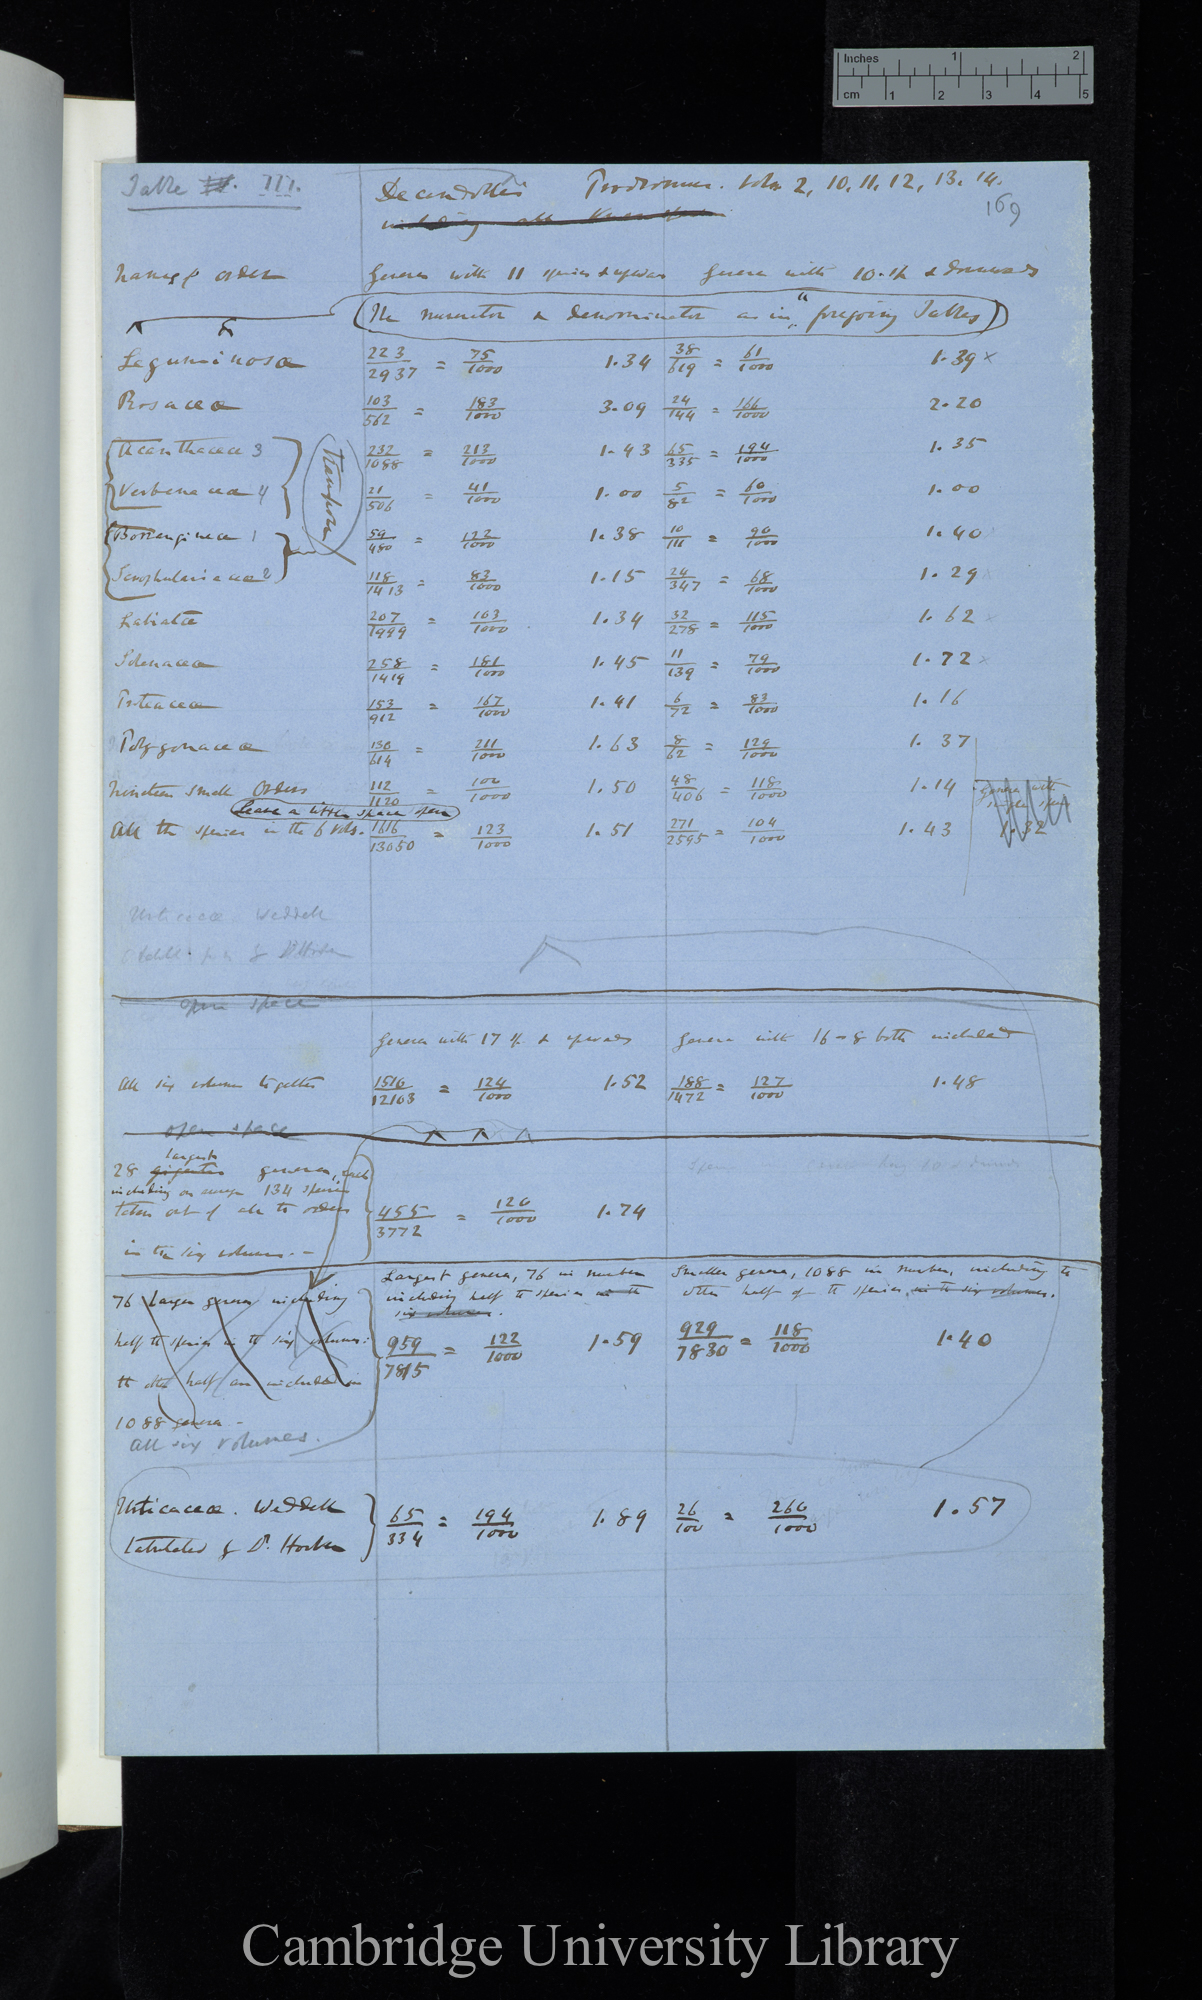 Inches 1 2
cm 1 2 3 4 5
Table III.
Decandolle's Prodromus. Vols 2, 10, 11, 12, 13, 14.
169
including all
Name of Order Genera with 11 species & upwards Genera with 10 sp & downwards
(The numerator & denominator as in foregoing Tables)
Leguminosæ 223/2937 = 75/1000 1.34 38/619 = 61/1000 1.39 x
Rosaceæ 103/562 = 183/1000 3.09 24/144 = 166/1000 2.20
Acanthaceæ 3 232/1088 = 213/1000 1.43 65/335 = 194/1000 1.35
Verbenaceæ 4 21/506 = 41/1000 1.00 5/82 = 60/1000 1.00
Transpose
Borragineæ 1 59/480 = 122/1000 1.38 10/111 = 90/1000 1.40
Scrophulariaceæ 2 118/1413 = 83/1000 1.15 24/347 = 68/1000 1.29 x
Labiatæ 207/1999 = 103/1000 1.34 32/278 = 115/1000 1.62 x
Solanaceæ 258/1419 = 181/1000 1.45 11/139 = 79/1000 1.72 x
Proteaceæ 153/912 = 167/1000 1.41 6/72 = 83/1000 1.16
Polygonaceæ 130/614 = 211/1000 1.63 8/62 = 129/1000 1.37
Nineteen small Orders 112/1120 = 100/1000 1.50 48/406 = 118/1000 1.14
genera with single spec
Leave a little space open
All the species in the 6 vols. 1616/13050 = 123/1000 1.51 271/2595 = 104/1000 1.43 1.32
Urticaceæ Weddell
Dr Hooker
open space
Genera with 17 sp & upwards Genera with 16-8 both included
All six volumes together 1510/12103 = 124/1000 1.52 188/1472 = 127/1000 1.48
open space
largest
28 gigantic genera, each
including on average 134 species
taken out of all the orders
in the six volumes. - 455/3772 = 120/1000 1.74
Largest genera, 76 in number
including half the species in the
six volumes.
Smaller genera, 1088 in number, including the
other half of the species, in the six volumes.
76 Larger genera including
half the species in the six volumes: 959/7815 = 122/1000 1.59 929/7830 = 118/1000 1.40
the other half are included in
1088 genera -
All six volumes.
Urticaceæ. Weddell
tabulated by Dr. Hooker 65/334 = 194/1000 1.89 26/100 = 260/1000 1.57
Cambridge University Library